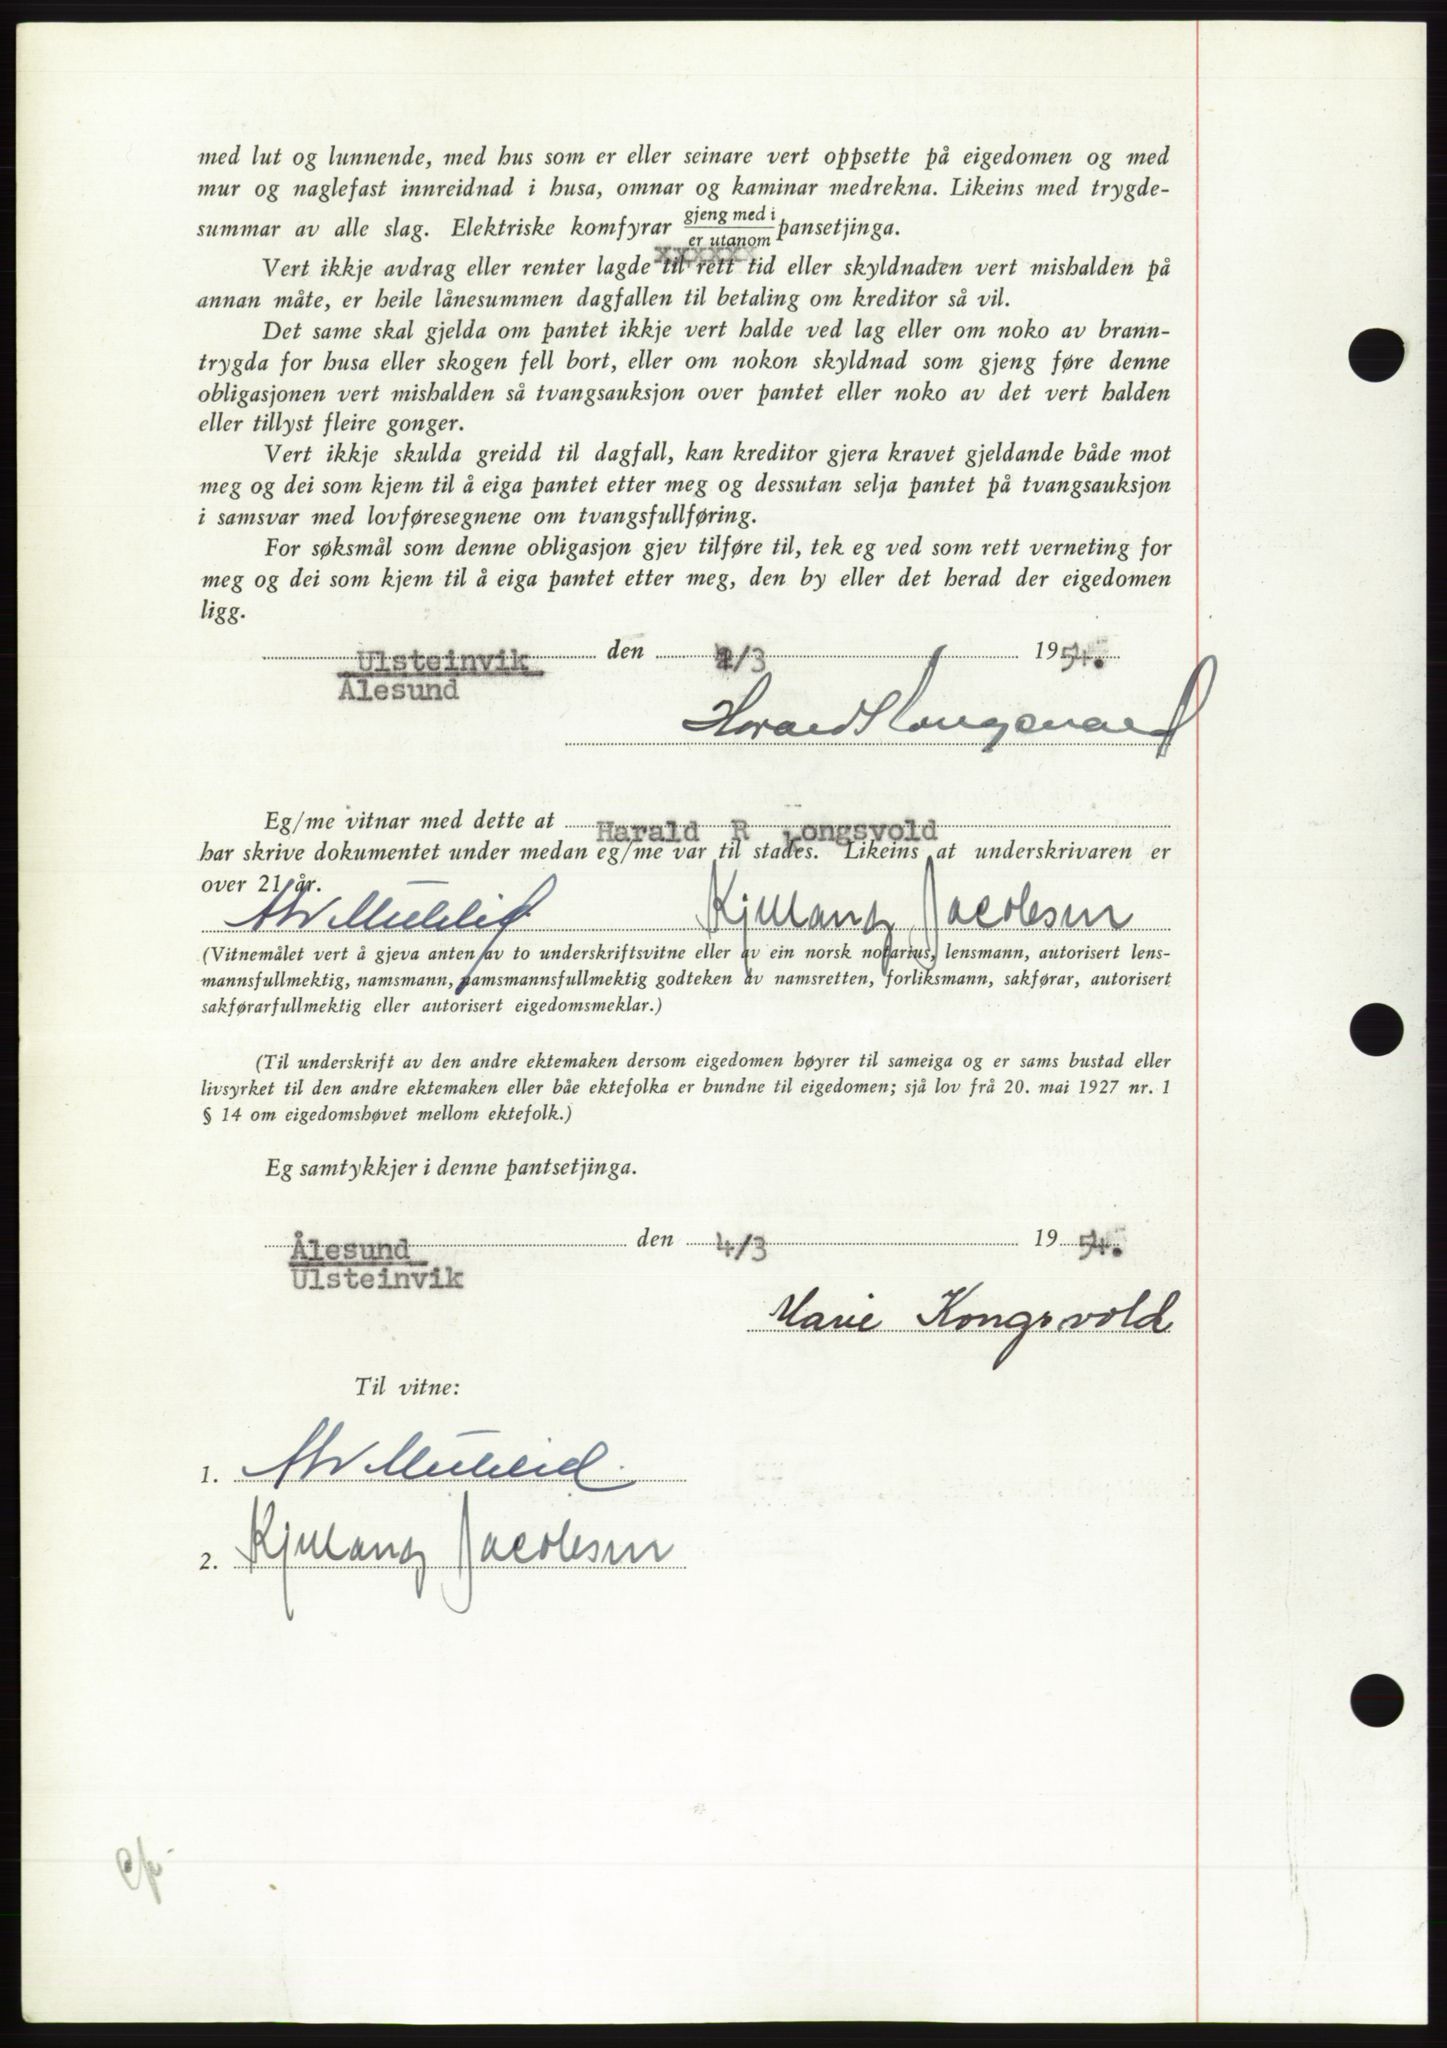 med lut og lunnende, med hus som er eller seinare vert oppsette på eigedomen og med
mur og naglefast innreidnad i husa, omnar og kaminar medrekna. Likeins med trygde-
summar av alle slag. Elektriske komfyrar gjeng med i / er utanom pansetjinga.
xxxxxx
Vert ikkje avdrag eller renter lagde til rett tid eller skyldnaden vert mishalden på
annan måte, er heile lånesummen dagfallen til betaling om kreditor så vil.
Det same skal gjelda om pantet ikkje vert halde ved lag eller om noko av brann-
trygda for husa eller skogen fell bort, eller om nokon skyldnad som gjeng føre denne
obligasjonen vert mishalden så tvangsauksjon over pantet eller noko av det vert halden
eller tillyst fleire gonger.
Vert ikkje skulda greidd til dagfall, kan kreditor gjera kravet gjeldande både mot
meg og dei som kjem til å eiga pantet etter meg og dessutan selja pantet på tvangsauksjon
i samsvar med lovføresegnene om tvangsfullføring.
For søksmål som denne obligasjon gjev tilføre til, tek eg ved som rett verneting for
meg og dei som kjem til å eiga pantet etter meg, den by eller det herad der eigedomen
ligg.
Ulsteinvik den 4/3 1954.
Ålesund
Eg/me vitnar med dette at Harald R Kongsvold
har skrive dokumentet under medan eg/me var til stades. Likeins at underskrivaren er
over 21 år.
Jacobsen
(Vitnemålet vert å gjeva anten av to underskriftsvitne eller av ein norsk notarius, lensmann, autorisert lens-
mannsfullmektig, namsmann, namsmannsfullmektig godteken av namsretten, forliksmann, sakførar, autorisert
sakførarfullmektig eller autorisert eigedomsmeklar.)
(Til underskrift av den andre ektemaken dersom eigedomen høyrer til sameiga og er sams bustad eller
livsyrket til den andre ektemaken eller båe ektefolka er bundne til eigedomen; sjå lov frå 20. mai 1927 nr. 1
§ 14 om eigedomshøvet mellom ektefolk.)
Eg samtykkjer i denne pantsetjinga.
Ålesund den 4/3 1954.
Ulsteinvik
Marie Kongsvold
Til vitne:
1.
2. Jacobsen